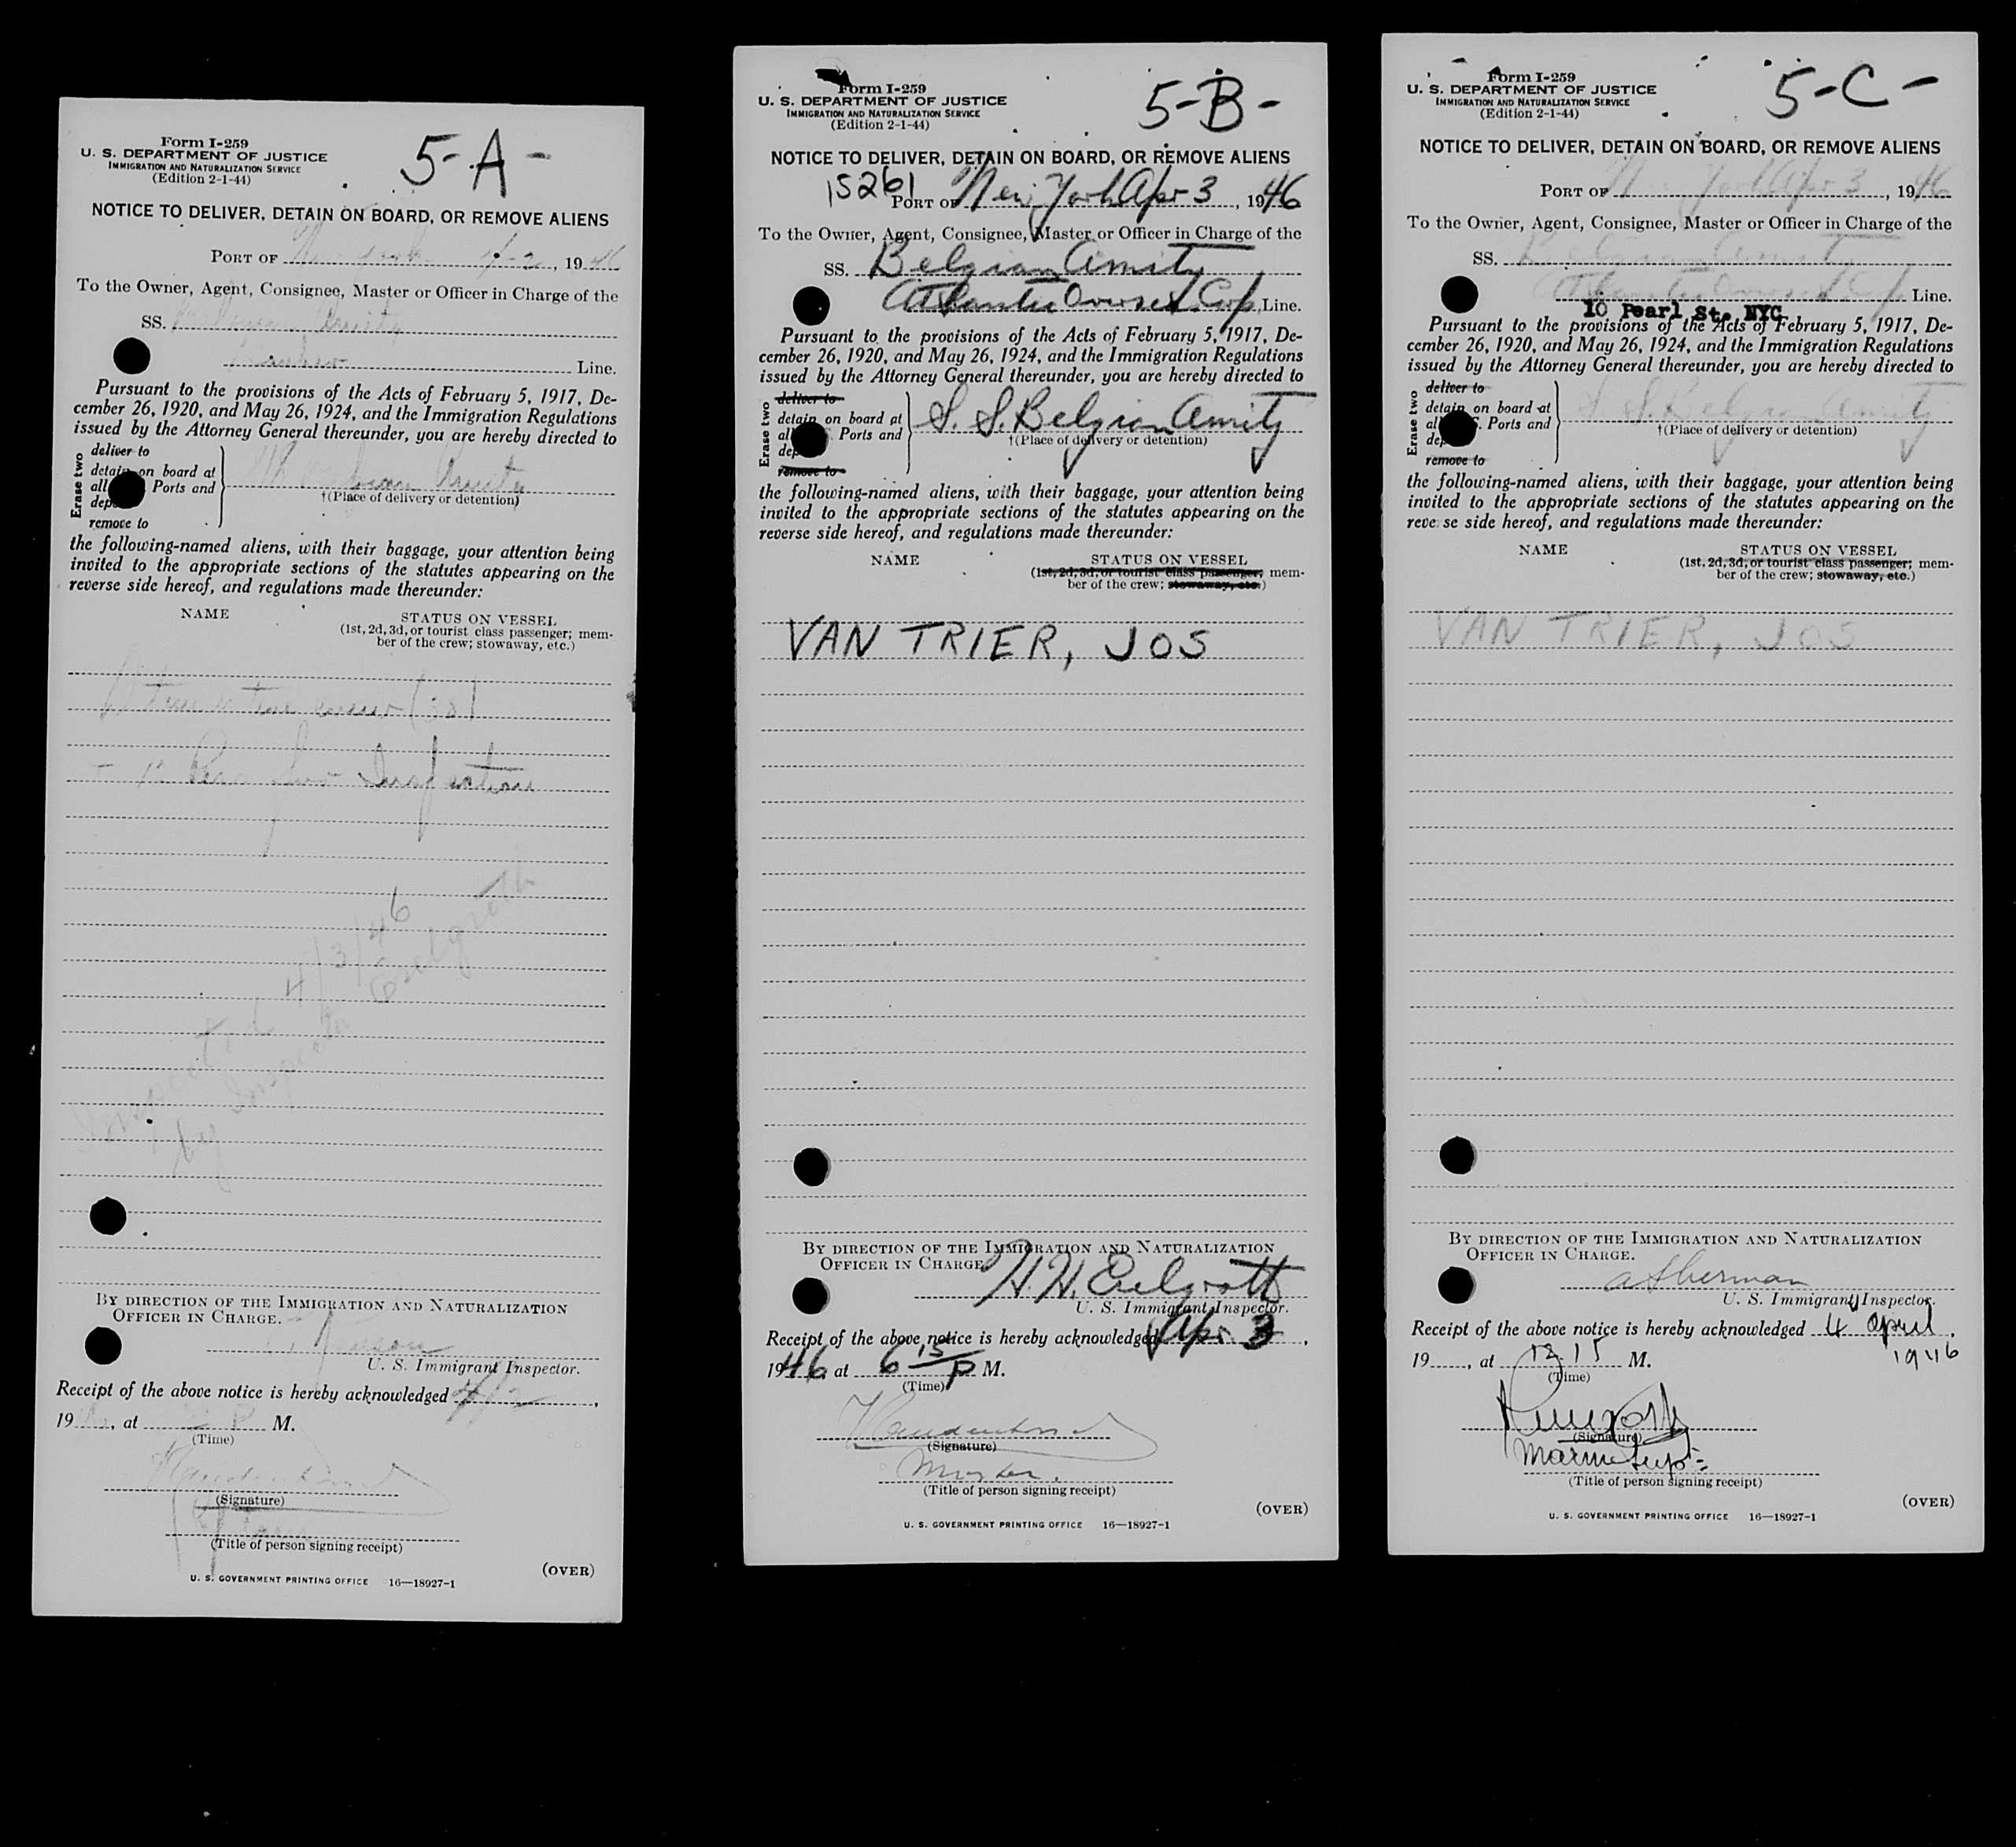 5-A-
Form I-259
U. S. DEPARTMENT OF JUSTICE
IMMIGRATION AND NATURALIZATION SERVICE
(Edition 2-1-44)
NOTICE TO DELIVER, DETAIN ON BOARD, OR REMOVE ALIENS
PORT OF New York 4-2, 1946
To the Owner, Agent, Consignee, Master or Officer in Charge of the
SS. Belgian Amity
Line.
Pursuant to the provisions of the Acts of February 5, 1917, De-
cember 26, 1920, and May 26, 1924, and the Immigration Regulations
issued by the Attorney General thereunder, you are hereby directed to
Erase two
deliver to
detain on board at
all Ports and
dep
remove to
Amity
†(Place of delivery or detention)
the following-named aliens, with their baggage, your attention being
invited to the appropriate sections of the statutes appearing on the
reverse side hereof, and regulations made thereunder:
NAME STATUS ON VESSEL
(1st, 2d, 3d, or tourist class passenger; mem-
ber of the crew; stowaway, etc.)
crew (38)
for Inspection
Inspected 4/3/46
by Inspector Eselgroth
BY DIRECTION OF THE IMMIGRATION AND NATURALIZATION
OFFICER IN CHARGE.
U. S. Immigrant Inspector.
Receipt of the above notice is hereby acknowledged 4/2,
19, at P M.
(Time)
(Signature)
(Title of person signing receipt)
(OVER)
U. S. GOVERNMENT PRINTING OFFICE 16—18927-1
5-B-
Form I-259
U. S. DEPARTMENT OF JUSTICE
IMMIGRATION AND NATURALIZATION SERVICE
(Edition 2-1-44)
NOTICE TO DELIVER, DETAIN ON BOARD, OR REMOVE ALIENS
15261
PORT OF New York Apr 3, 1946
To the Owner, Agent, Consignee, Master or Officer in Charge of the
SS. Belgian Amity
Atlantic Overseas Corp. Line.
Pursuant to the provisions of the Acts of February 5, 1917, De-
cember 26, 1920, and May 26, 1924, and the Immigration Regulations
issued by the Attorney General thereunder, you are hereby directed to
Erase two
deliver to
detain on board at
al Ports and
dep
remove to
S. S. Belgian Amity
†(Place of delivery or detention)
the following-named aliens, with their baggage, your attention being
invited to the appropriate sections of the statutes appearing on the
reverse side hereof, and regulations made thereunder:
NAME STATUS ON VESSEL
(1st, 2d, 3d, or tourist class passenger; mem-
ber of the crew; stowaway, etc.)
VAN TRIER, JOS
BY DIRECTION OF THE IMMIGRATION AND NATURALIZATION
OFFICER IN CHARGE.
H. H. Eselgroth
U. S. Immigrant Inspector.
Receipt of the above notice is hereby acknowledged Apr. 3,
1946 at 6 15 P M.
(Time)
(Signature)
Master.
(Title of person signing receipt)
(OVER)
U. S. GOVERNMENT PRINTING OFFICE 16—18927-1
5-C-
Form I-259
U. S. DEPARTMENT OF JUSTICE
IMMIGRATION AND NATURALIZATION SERVICE
(Edition 2-1-44)
NOTICE TO DELIVER, DETAIN ON BOARD, OR REMOVE ALIENS
PORT OF New York Apr 3, 1946
To the Owner, Agent, Consignee, Master or Officer in Charge of the
SS. Belgian Amity
Atlantic Overseas Corp Line.
10 Pearl St. NYC
Pursuant to the provisions of the Acts of February 5, 1917, De-
cember 26, 1920, and May 26, 1924, and the Immigration Regulations
issued by the Attorney General thereunder, you are hereby directed to
Erase two
deliver to
detain on board at
al S. Ports and
dep
remove to
S. S. Belgian Amity
†(Place of delivery or detention)
the following-named aliens, with their baggage, your attention being
invited to the appropriate sections of the statutes appearing on the
reve se side hereof, and regulations made thereunder:
NAME STATUS ON VESSEL
(1st, 2d, 3d, or tourist class passenger; mem-
ber of the crew; stowaway, etc.)
VAN TRIER, JOS
BY DIRECTION OF THE IMMIGRATION AND NATURALIZATION
OFFICER IN CHARGE.
A Sherman
U. S. Immigrant Inspector.
Receipt of the above notice is hereby acknowledged 4 April,
1946
19, at 12 15 M.
(Time)
(Signature)
Marine Supt:
(Title of person signing receipt)
(OVER)
U. S. GOVERNMENT PRINTING OFFICE 16—18927-1